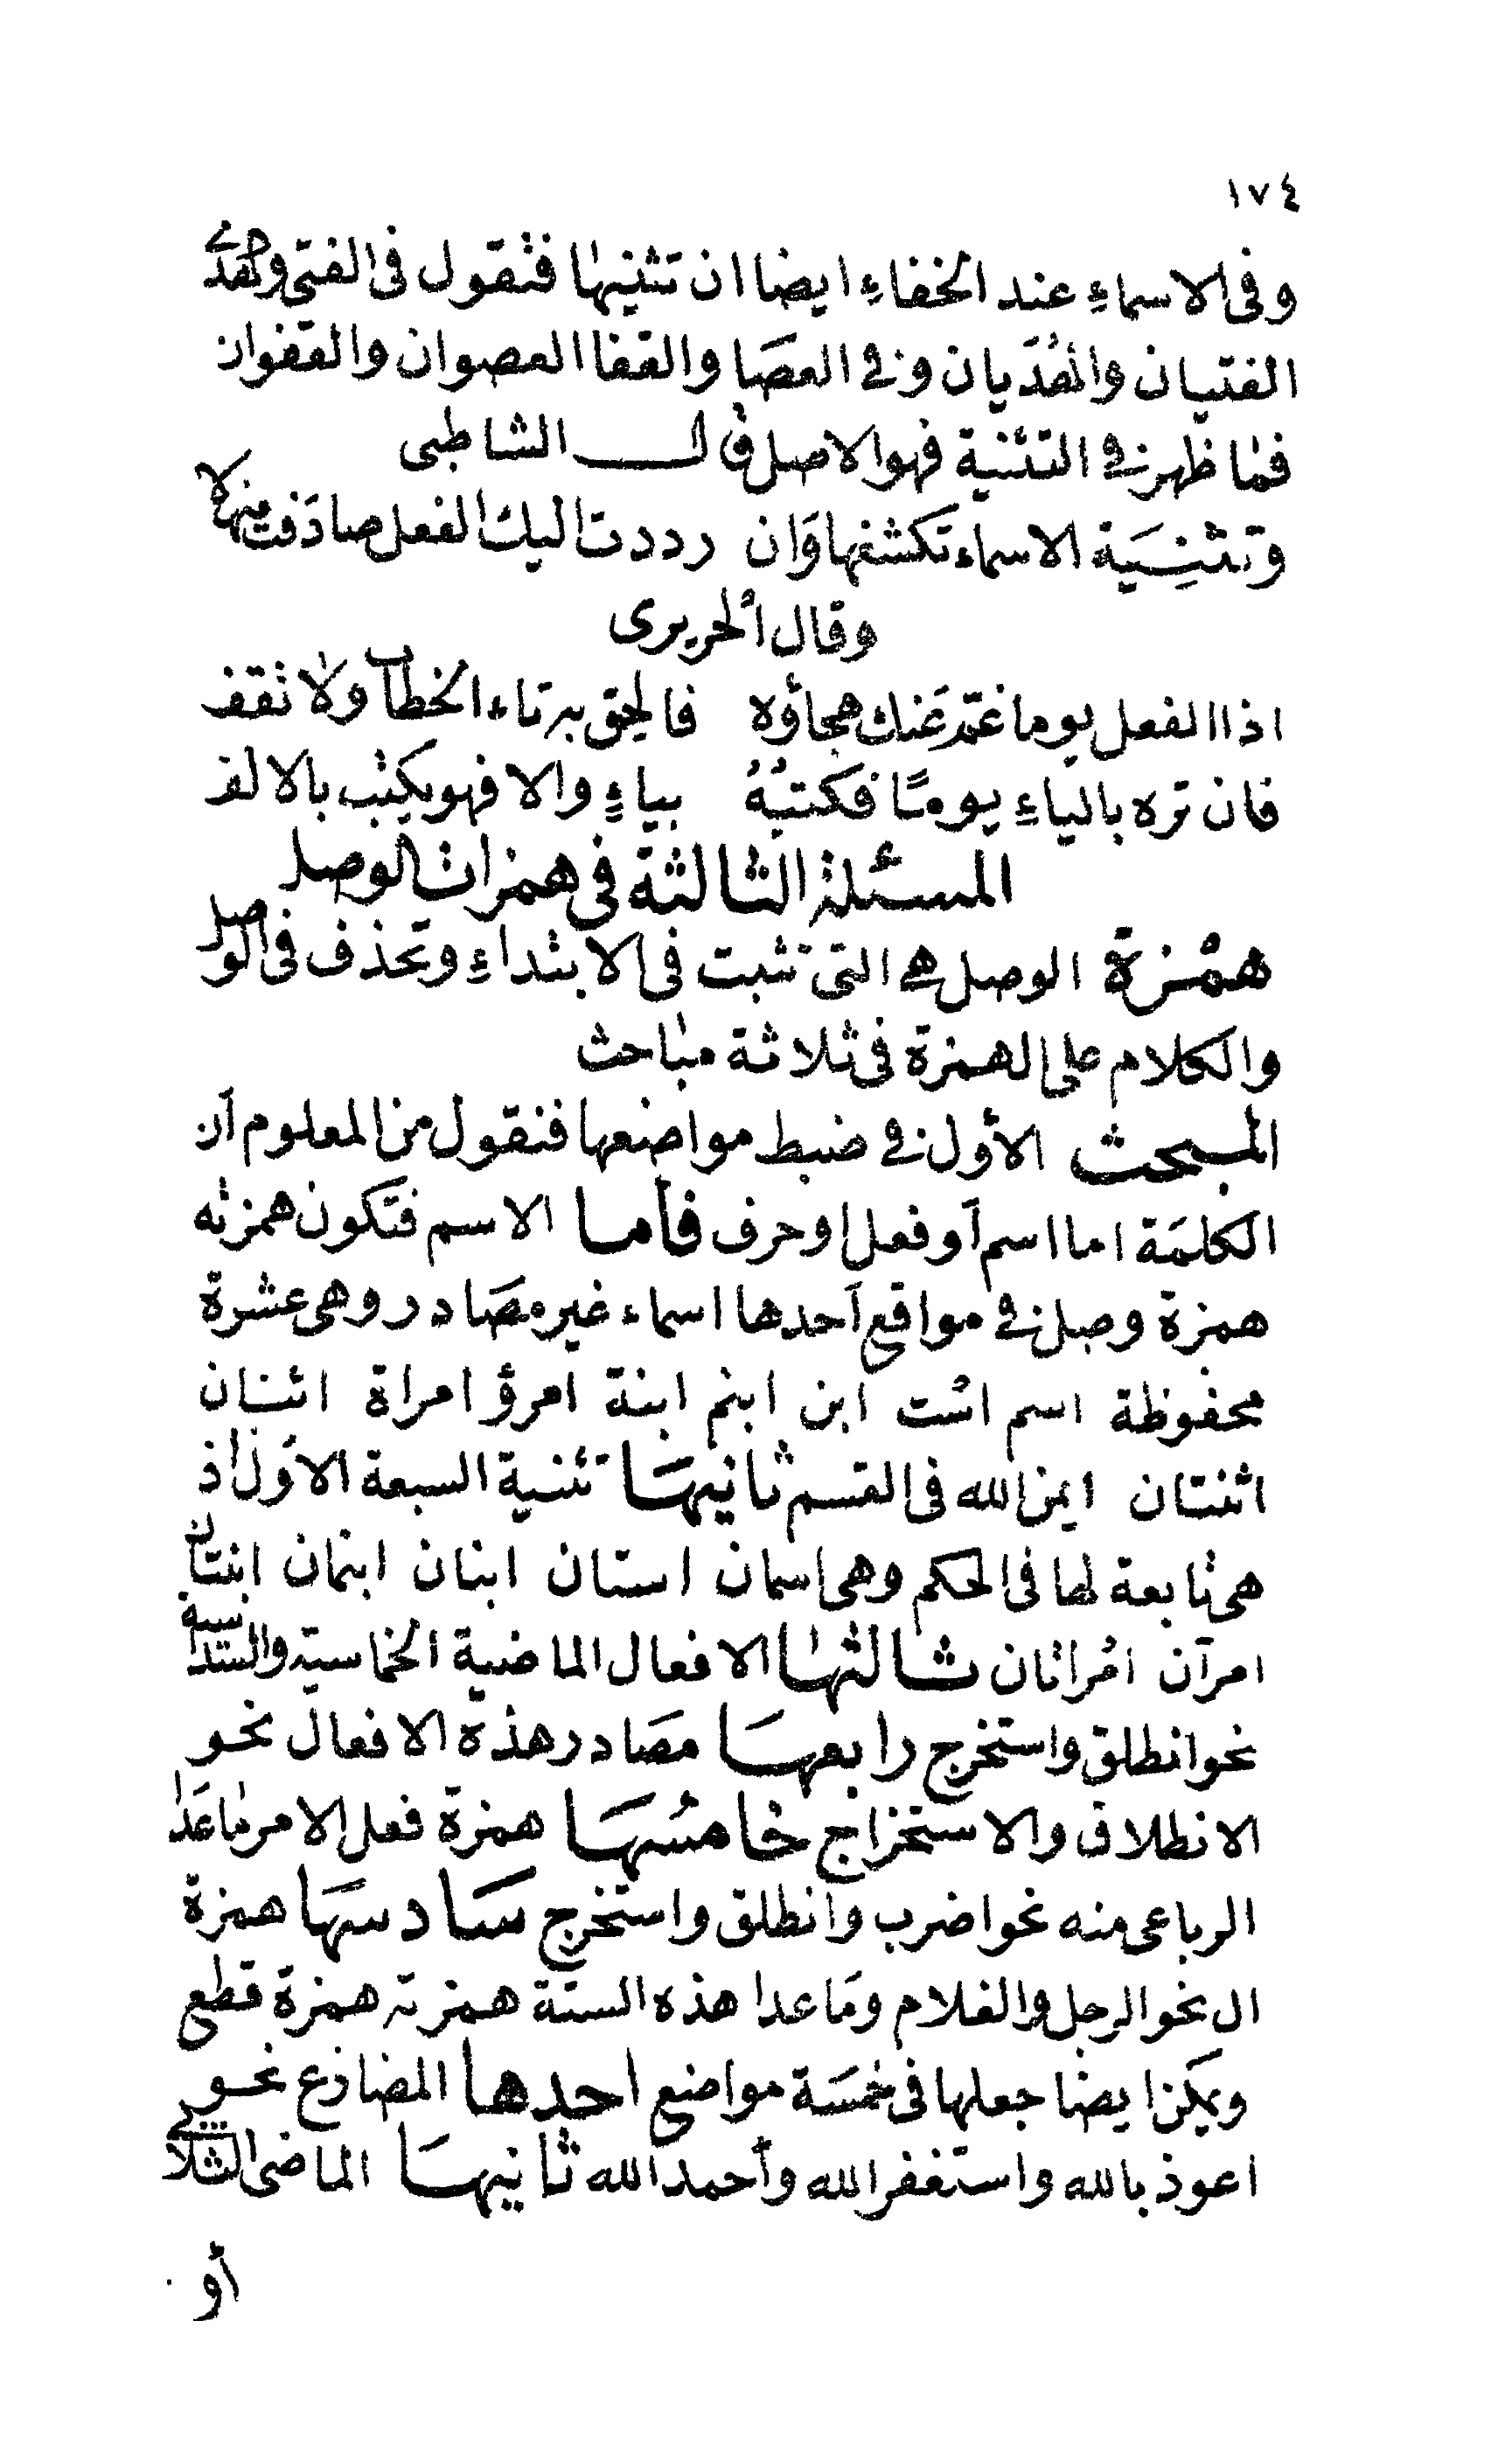 ١٧٤
وفى الاسماءِ عند الخفاءِ ايضا ان تثنيها فتقول فى الفتى والهدى
الفتيان والهُدَيان وفى العصَا والقفا العصوان والقفوان
فما ظهر فى التثنية فهو الاصل قال الشاطبى
وتثنِيَة الاسماء تكشفها وَان رددت اليك الفعل صادَفت منهلا
وقال ألحريرى
اذا الفعل يوما غمّ عَنك هجاؤه فالحق به تاء الخطاب ولا تقف
فان تره بالياءِ يومًا فكتبُهُ بياءٍ والا فهو يكتب بالالف
المسئلة الثالثة فى همزات الوصل
همْزة الوصل هى التى تثبت فى الابتداءِ وتحذف فى الوصل
والكلام على الهمزة فى ثلاثة مباحث
المبحث الأول فى ضبط مواضعها فنقول من المعلوم أن
الكلمَة اما اسم أو فعل او حرف فأما الاسم فتكون همزته
همزة وصل فى مواقع أحدها اسماء غير مصَادر وهى عشرة
محفوظة اسم اسْت ابن ابنم ابنة امرؤ امراة اثنان
اثنتان ايمن الله فى القسم ثانيهَا تثنية السبعة الاَول اذ
هى تابعة لها فى الحكم وهى اسمان استان ابنان ابنمان ابنتان
امرآن امْراتان ثالثها الافعال الماضية الخماسية والسداسية
نحو انطلق واستخرج رابعهَا مصَادر هذة الافعال نحو
الانطلاق والاستخراج خامسُهَا همزة فعل الامر ماعَدا
الرباعى منه نحو اضرب وانطلق واستخرج سَادسهَا همزة
ال نحو الرجل والغلام ومَاعدا هذه الستة همزته همزة قطع
ويمكن ايضا جعلها فى خمسَة مواضع احدها المضارع نحو
اعوذ بالله واستغفر الله وأحمد الله ثانيهَا الماضى الثلاثى
أو